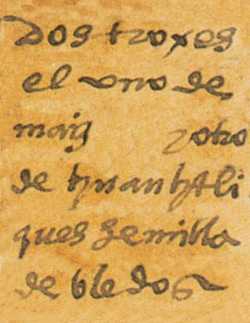 Dos troxes
el uno de
maiz y otro
de huauhtli
ques semilla
de bledos